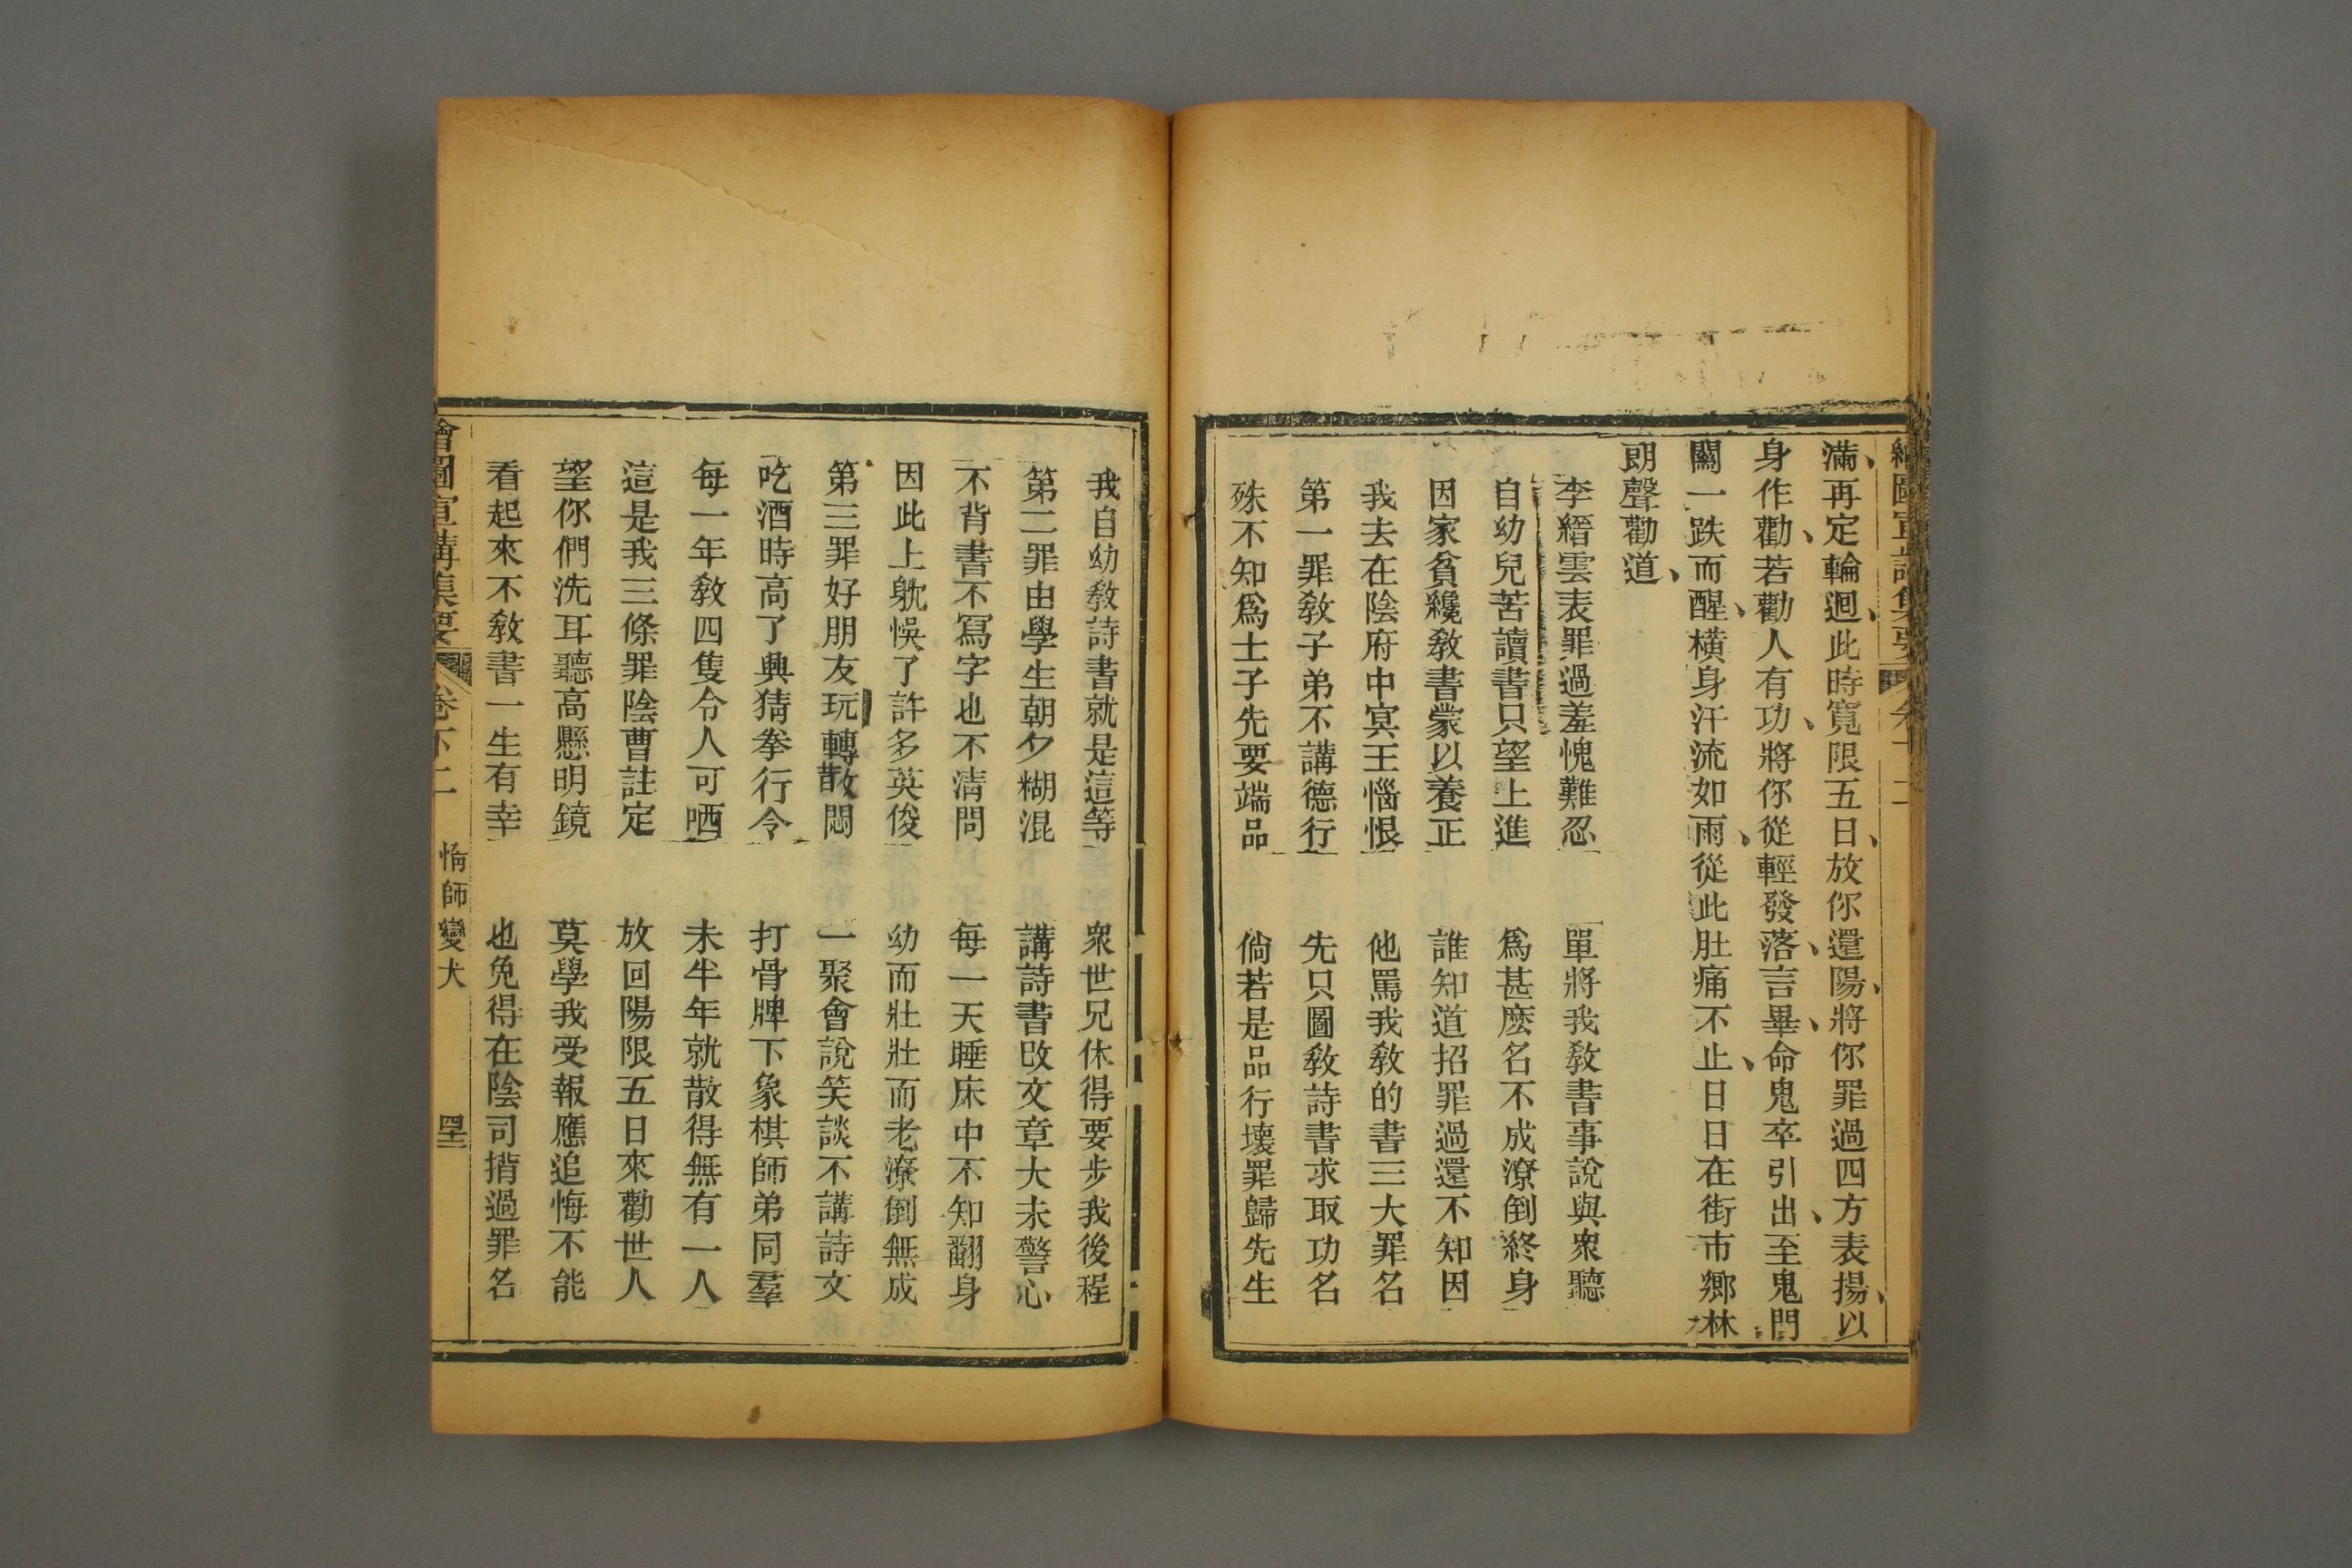 滿、再定輪迴、此時寬限五日、放你還陽、將你罪過四方表揚、以
身作勸、若勸人有功、將你從輕發落、言畢、命鬼卒引出、至鬼門
關一跌而醒、橫身汗流如雨、從此肚痛不止、日日在街市鄉林
朗聲勸道、
李縉雲表罪過羞愧難忍 單將我教書事說與衆聽
自幼兒苦讀書只望上進 爲甚麽名不成潦倒終身
因家貧纔教書蒙以養正 誰知道招罪過還不知因
我去在陰府中冥王惱恨 他罵我教的書三大罪名
第一罪教子弟不講德行 先只圖教詩書求取功名
殊不知爲士子先要端品 倘若是品行壞罪歸先生
我自幼教詩書就是這等 衆世兄休得要步我後程
第二罪由學生朝夕糊混 講詩書改文章大未警心
不背書不寫字也不清問 每一天睡床中不知翻身
因此上躭悞了許多英俊 幼而壯壯而老潦倒無成
第三罪好朋友玩轉散悶 一聚會說笑談不講詩文
吃酒時高了興猜拳行令 打骨牌下象棋師弟同羣
每一年教四隻令人可哂 未半年就散得無有一人
這是我三條罪陰曹註定 放回陽限五日來勸世人
望你們洗耳聽高懸明鏡 莫學我受報應追悔不能
看起來不教書一生有幸 也免得在陰司揹過罪名
繪圖宣講集要 卷十二 惰師變犬